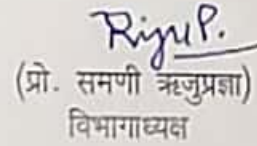 Riju P.
(प्रो. समणी ऋजुप्रज्ञा)
विभागाध्यक्ष